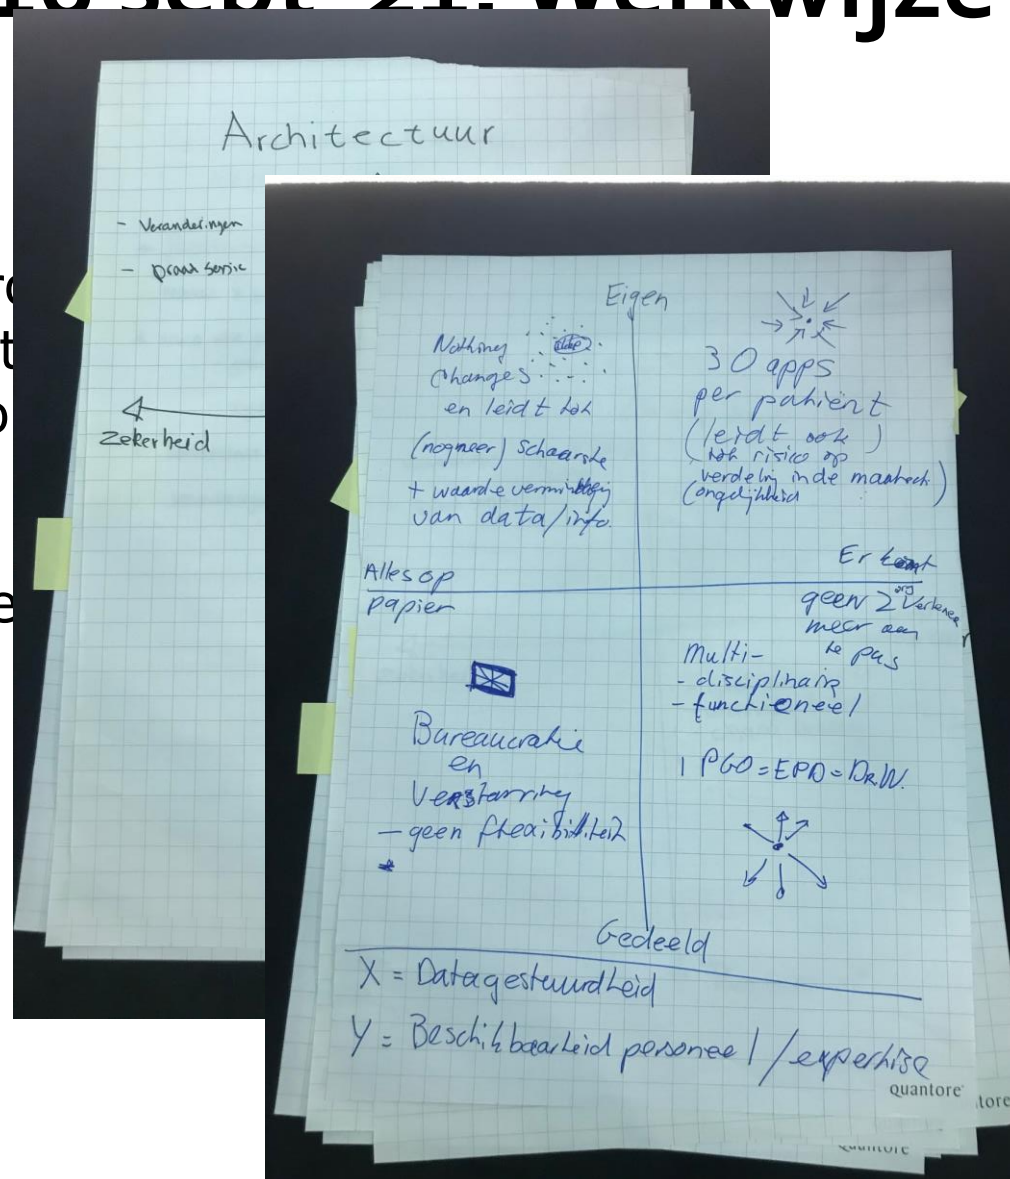 16 sept '21: Werkwijze
Architectuur
- Veranderingen
Zekerheid
Eigen
Nothing
changes
en leidt tot
(nogmeer) schaarste
+ waardevermindering
van data/info
30 apps
per patiënt
(leidt ook)
tot risico op
verdeling in de maatsch.
(ongelijkheid)
Alles op
papier
Er komt
geen
meer aan
te pas
Multi-
- disciplinair
- functioneel
Bureaucratie
en
Verstarring
- geen flexibiliteit
1 PGO = EPD = Dr.W.
Gedeeld
X = Datagestuurdheid
Y = Beschikbaarheid personeel / expertise
quantore
tore
quantore